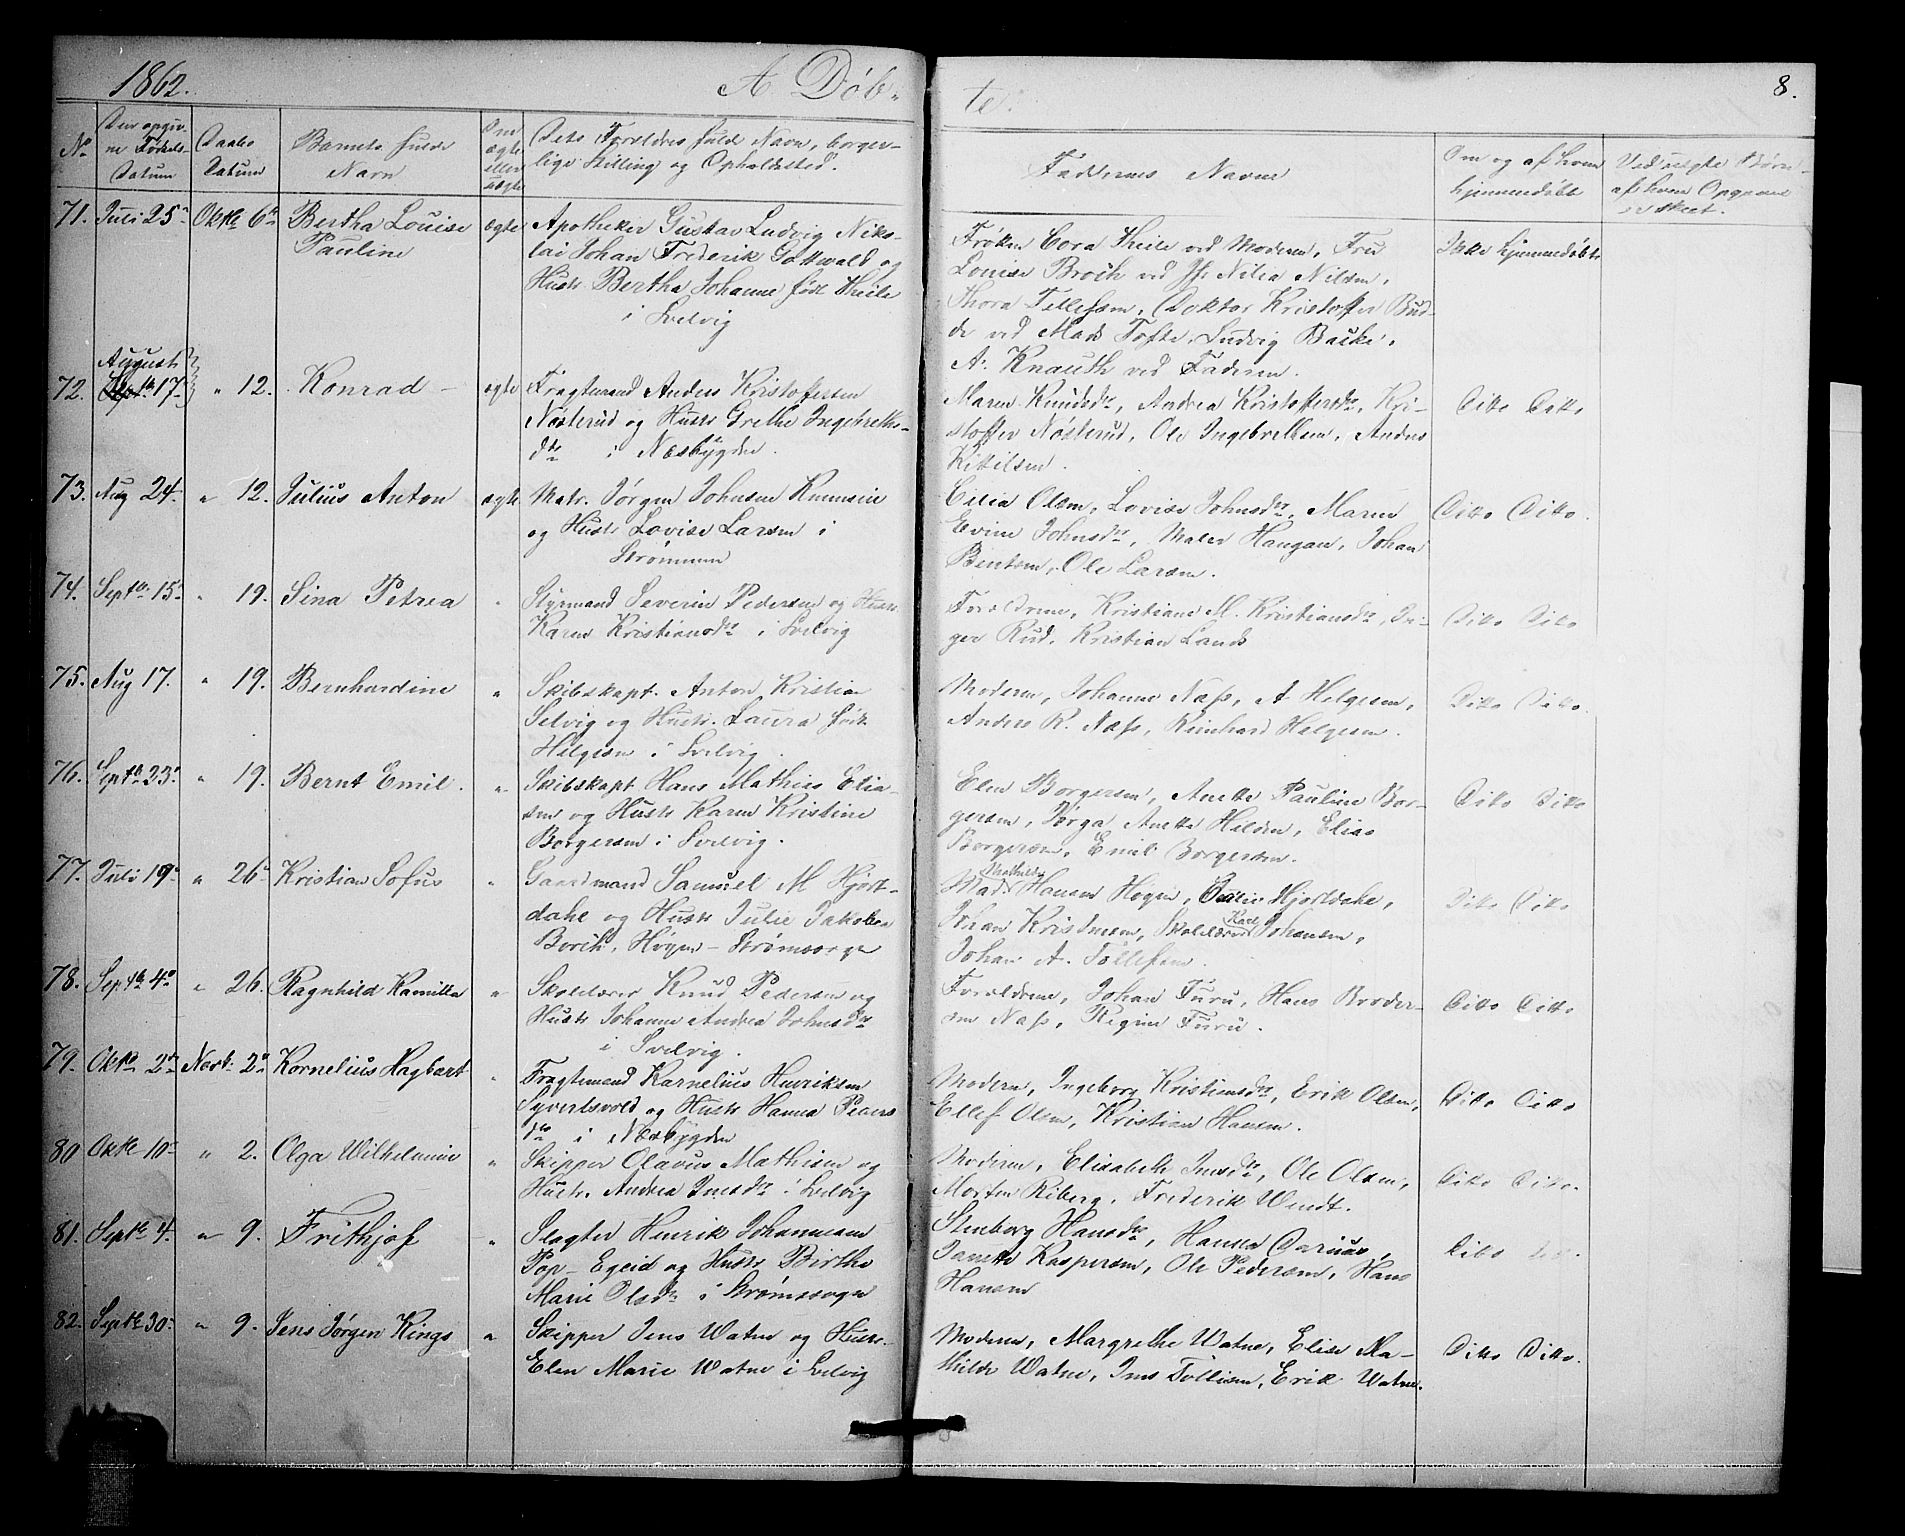 1862.
A. Døb-
te.
8.
No
Den opgiv-
ne Fødsels-
Datum
Daabs
Datum
Barnets fulde
Navn
Om
ægte
eller
uægte
Dets Forældres fulde Navn, borger-
lige Stilling og Opholdssted.
Faddernes Navne
Om og af hvem
hjemmedøbt
Ved uægte Børn
af hvem Opgaven
er skeet.
71. Juli 25 Oktbr 6te Bertha Louise
Pauline
ægte
Apotheker Gustav Ludvig Niko-
lai Johan Frederik Gottwald og
Hustr. Bertha Johanne født Theile
i Svelvig
Frøken Cora Theile ved Moderen, Fru
Louise Broch ved Jfr Nilia Nilsen,
Thora Tellefsen, Doktor Kristoffer Bud-
de ved Mads Tofte, Ludvig Bache,
A. Knauth ved Faderen.
Ikke hjemmedøbt
August
72. Septbr 17. " 12. Konrad – ægte
Fragtemand Anders Kristoffersen
Nøsterud og Hustr Grethe Ingebreths-
dtr i Næsbygden.
Maren Knudsdtr, Andrea Kristoffersdtr, Kri-
stoffer Nøsterud, Ole Ingebrethsen, Anders
Kittilsen.
Ditto Ditto
73. Aug 24. " 12. Julius Anton ægte
Matr. Jørgen Johnsen
og Hustr Lovise Larsen i
Strømmen
Cilia Olsen, Lovise Johnsdtr, Maren
Evine Johnsdtr, Haugan, Johan
Bentsen, Ole Larsen.
Ditto Ditto.
74. Septbr 15. " 19. Sina Petrea "
Styrmand Severin Pedersen og Hustr.
Karen Kristiansdtr i Svelvig
Forældrene, Kristiane M. Kristiansdtr, In-
ger Rud, Kristian Lands
Ditto Ditto
75. Aug 17. " 19. Bernhardine "
Skibskapt. Anton Kristian
Selvig og Hustr. Laura født
Helgesen i Svelvig.
Moderen, Johanne Næss, A Helgesen,
Anders R. Næss, Reinhard Helgesen.
Ditto Ditto.
76. Septbr 23. " 19. Bernt Emil. "
Skibskapt Hans Mathias Elia-
sen og Hustr Karen Kristine
Borgersen i Svelvig.
Elen Borgersen, Anette Pauline Bor-
gersen, Anette Hilden, Elias
Borgersen, Emil Borgersen.
Ditto Ditto
77. Juli 19. " 26. Kristian Sofus "
Gaardmand Samuel M Hjort-
dahl og Hustr Julie Jakobea
Borch, Høgen – Strømsorge
Mathilde
Hansen Høgen, Hjortdahl,
Johan Kristensen, Skolelærer Karl Johansen,
Johan A. Tollefsen.
Ditto Ditto
78. Septbr 4. " 26. Ragnhild Kamilla "
Skolelærer Knud Pedersen og
Hustr Johanne Andrea Johnsdtr
i Svelvig.
Forældrene, Johan Furu, Hans Broder-
sen Næss, Regine Furu.
Ditto Ditto
79. Oktbr 2. Novbr. 2. Kornelius Hagbart "
Fragtemand Karnelius Henriksen
Syvertsvold og Hustr Hanna Peders
dtr i Næsbygden
Moderen, Ingeborg Kristiansdtr, Erik Olsen,
Ellef Olsen, Kristian Hansen.
Ditto Ditto
80 Oktbr 10. " 2. Olga Wilhelmine "
Skipper Olavus Mathisen og
Hustr. Andrea Jensdtr i Svelvig
Moderen, Elisabeth Jensdtr, Ole Olsen,
Morten Riberg, Frederik Wendt.
Ditto Ditto.
81. Septbr 4. " 9. Frithjof "
Slagter Henrik Johannesen
Pop- Egeid og Hustr Birthe
Marie Olsdtr i Strømssogn
Stenborg Hansdtr, Hanna,
Janette Kaspersen, Ole Pedersen, Hans
Hansen
Ditto
82. Septbr 30. " 9. Jens Jørgen Kings "
Skipper Jens Watne og Hustr.
Elen Marie Watne i Svelvig
Moderen, Margrethe Watne, Elise Ma-
thilde Watne, Jens Tollisen, Erik Watne.
Ditto Ditto.